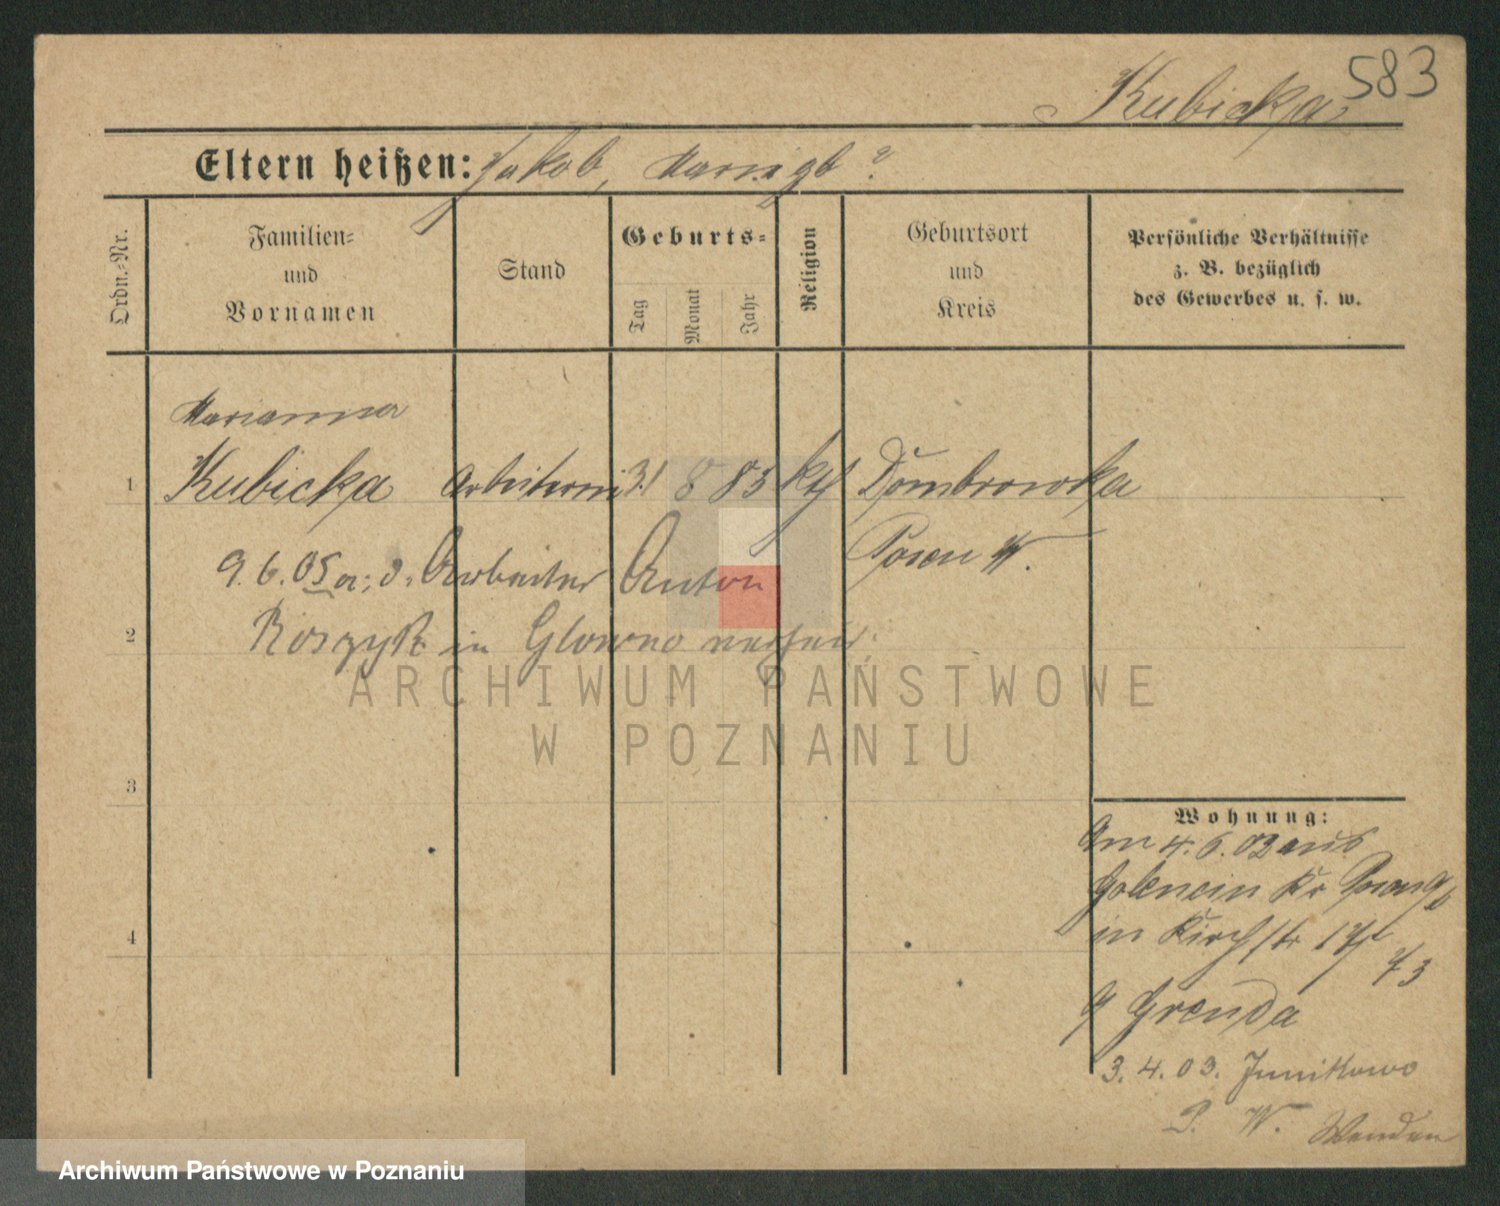 583
Kubicka
Eltern heißen: Jakob, gb ?
Ordn.-Nr.
Familien-
und
Vornamen
Stand
Geburts-
Tag
Monat
Jahr
Religion
Geburtsort
und
Kreis
Persönliche Verhältnisse
z. B. bezüglich
des Gewerbes u. s. w.
Marianna
1 Kubicka Arbeiterin 31 8 83 kth Dombrowka
Posen W.
9. 6. 05 a; d. Arbeiter Anton
2 Roszyk in Glowno
ARCHIWUM PAŃSTWOWE
W POZNANIU
3
4
Wohnung:
Am 4. 6. 02 aus
Golencin Kr Posen
in Kirchstr 17
73
Grenda
3. 4. 03. Junikowo
P. W. Wenden
Archiwum Państwowe w Poznaniu